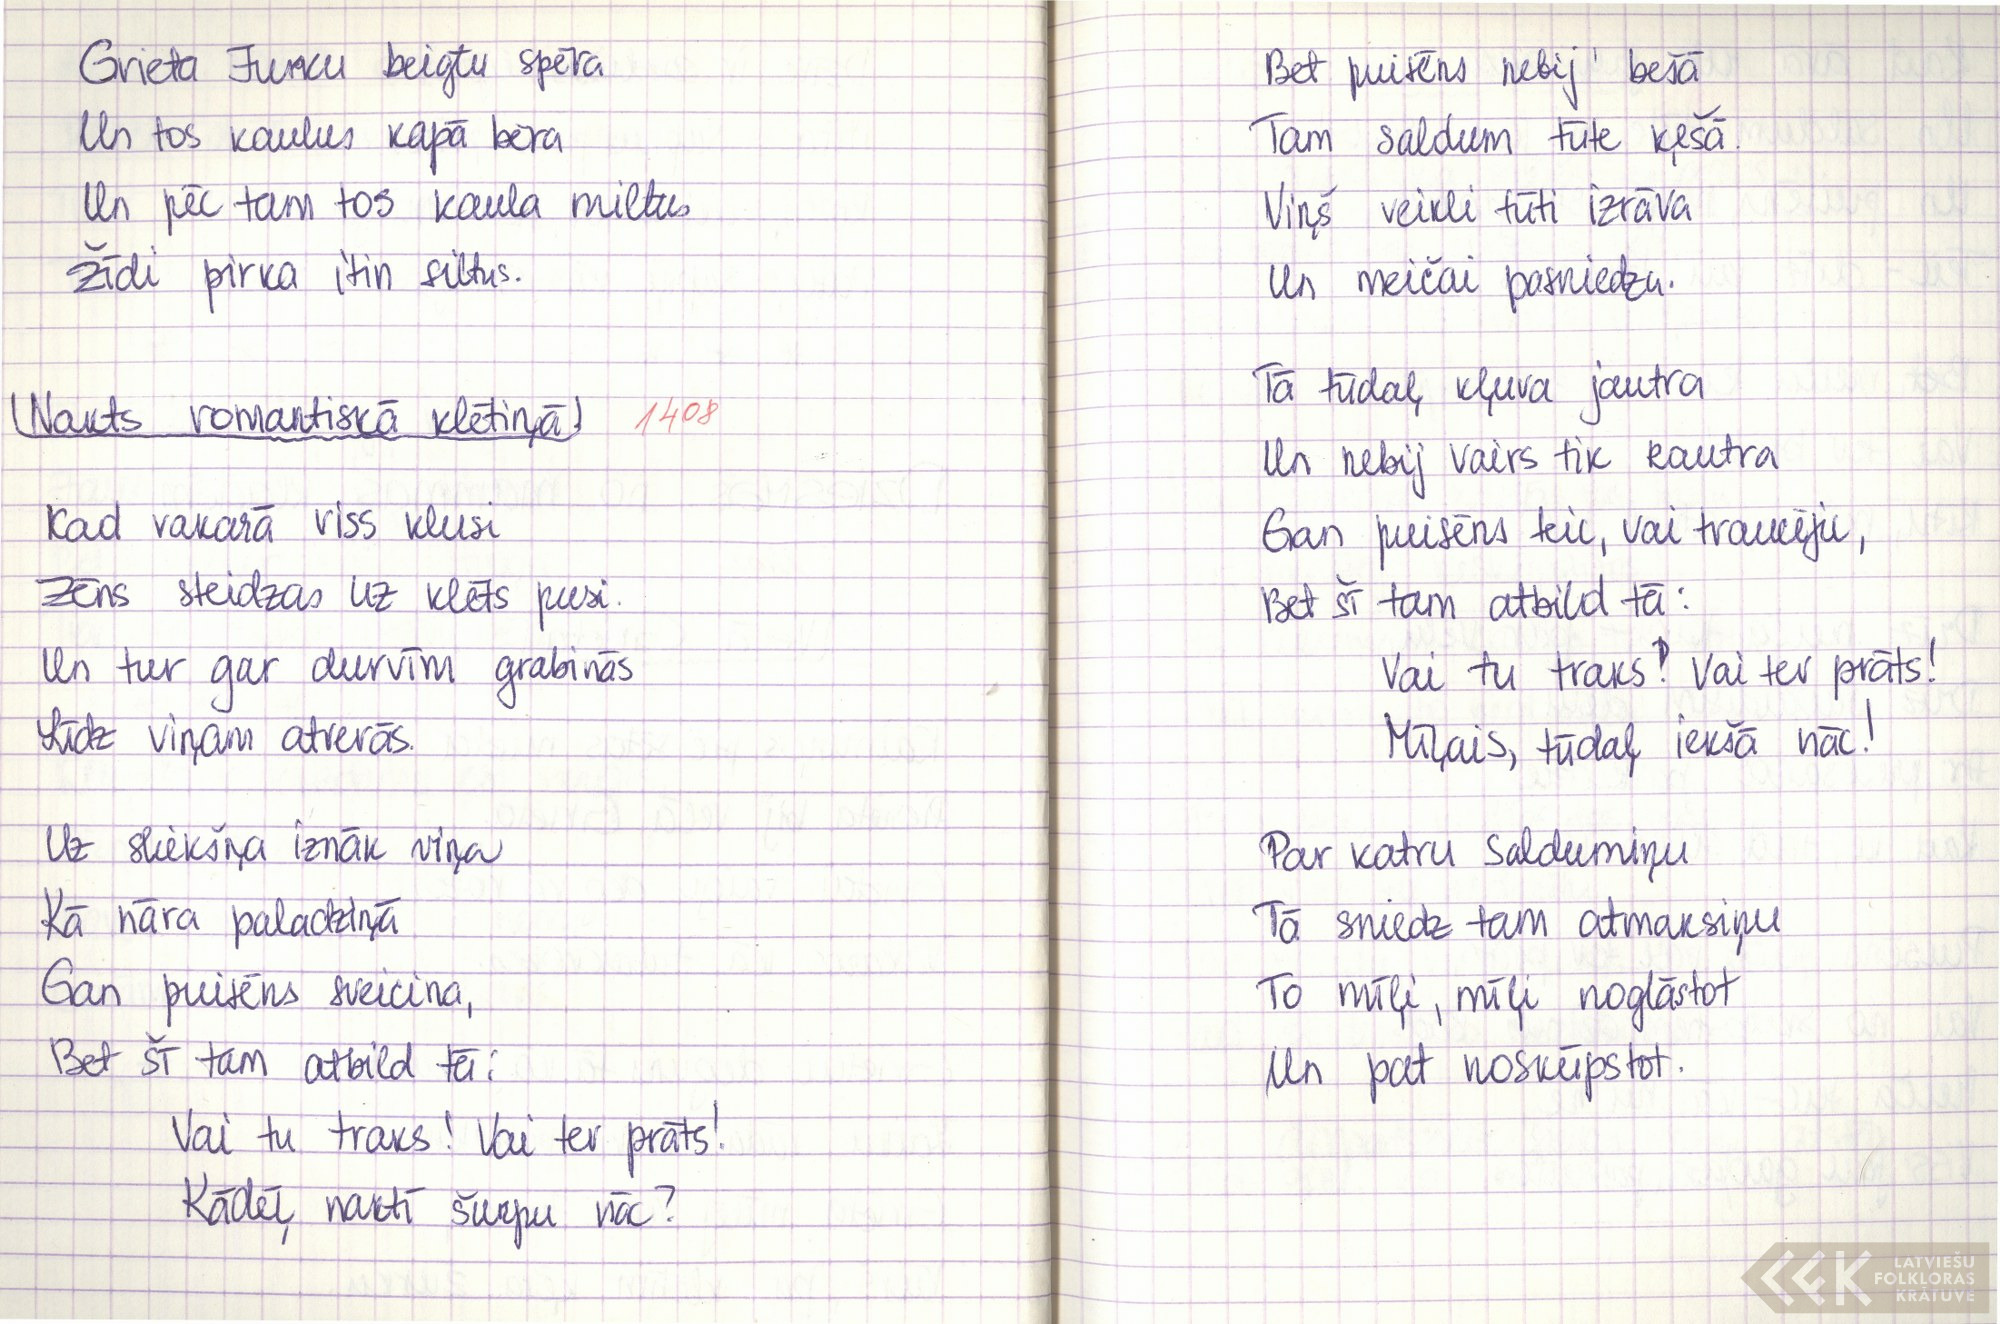 Grieta Jurku beigtu spēra
Un tos kaulus kapā bēra
Un pēc tam tos kaula miltus
Žīdi pirka itin siltus.
Nakts romantiskā klētiņā 1408
Kad vakarā viss klusi
Zēns steidzas uz klēts pusi.
Un tur gar durvīm grabinās
Līdz viņam atverās.
Uz sliekšņa iznāk viņa
Kā nāra paladziņā
Gan puisēns sveicina,
Bet šī tam atbild tā:
Vai tu traks! Vai ter prāts!
Kādēļ naktī šurpu nāc?
Bet puisēns nebij' bešā
Tam saldum tūte ķešā.
Viņš veikli tūti izrāva
Un meičai pasniedza.
Tā tūdaļ kļuva jautra
Un nebij vairs tik kautra
Gan puisēns teic, vai traucēju,
Bet šī tam atbild tā:
Vai tu traks? Vai ter prāts!
Mīļais, tūdaļ iekšā nāc!
Par katru saldumiņu
Tā sniedz tam atmaksiņu
To mīļi, mīļi noglāstot
Un pat noskūpstot.
LATVIEŠU
FOLKLORAS
KRĀTUVE